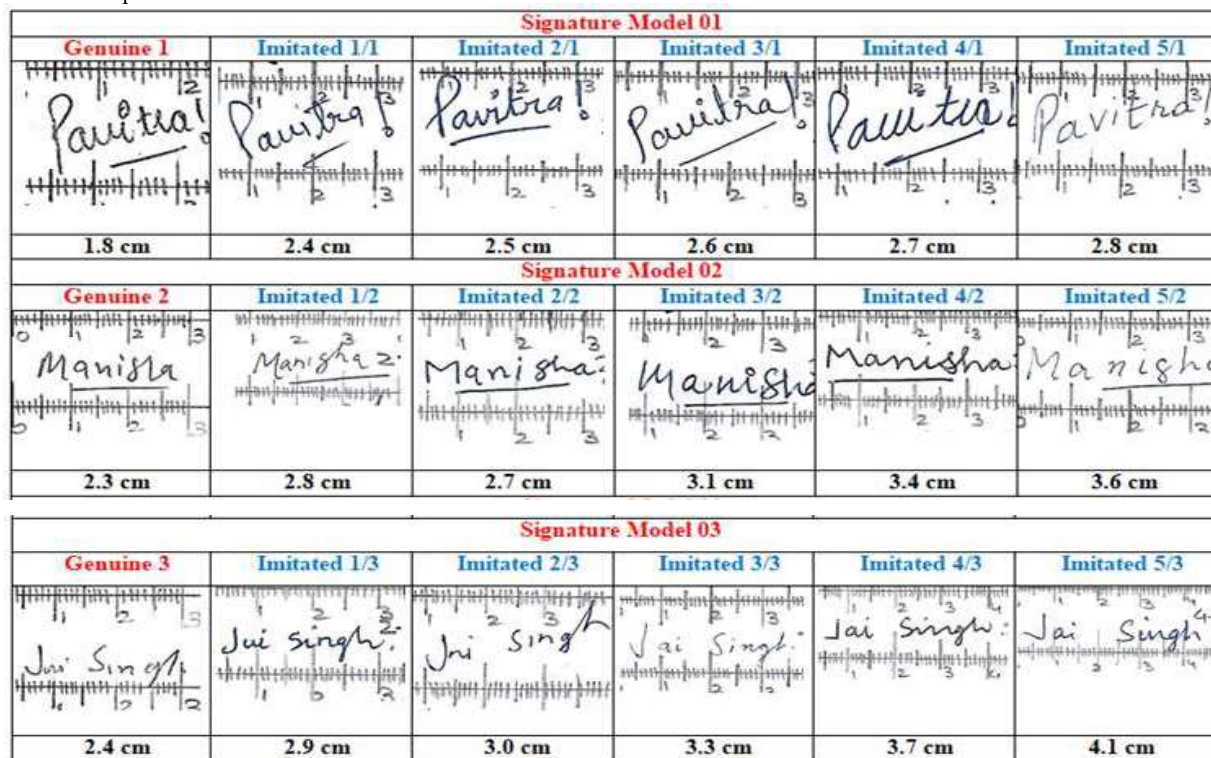 Signature Model 01
Genuine 1 Imitated 1/1 Imitated 2/1 Imitated 3/1 Imitated 4/1 Imitated 5/1
Pavitra! Pavitra! Pavitra! Pavitra! Pavitra! Pavitra!
1.8 cm 2.4 cm 2.5 cm 2.6 cm 2.7 cm 2.8 cm
Signature Model 02
Genuine 2 Imitated 1/2 Imitated 2/2 Imitated 3/2 Imitated 4/2 Imitated 5/2
Manisha Manisha Manisha: Manisha Manisha: Manisha
2.3 cm 2.8 cm 2.7 cm 3.1 cm 3.4 cm 3.6 cm
Signature Model 03
Genuine 3 Imitated 1/3 Imitated 2/3 Imitated 3/3 Imitated 4/3 Imitated 5/3
Jai Singh Jai Singh: Jai Singh Jai Singh: Jai Singh: Jai Singh
2.4 cm 2.9 cm 3.0 cm 3.3 cm 3.7 cm 4.1 cm